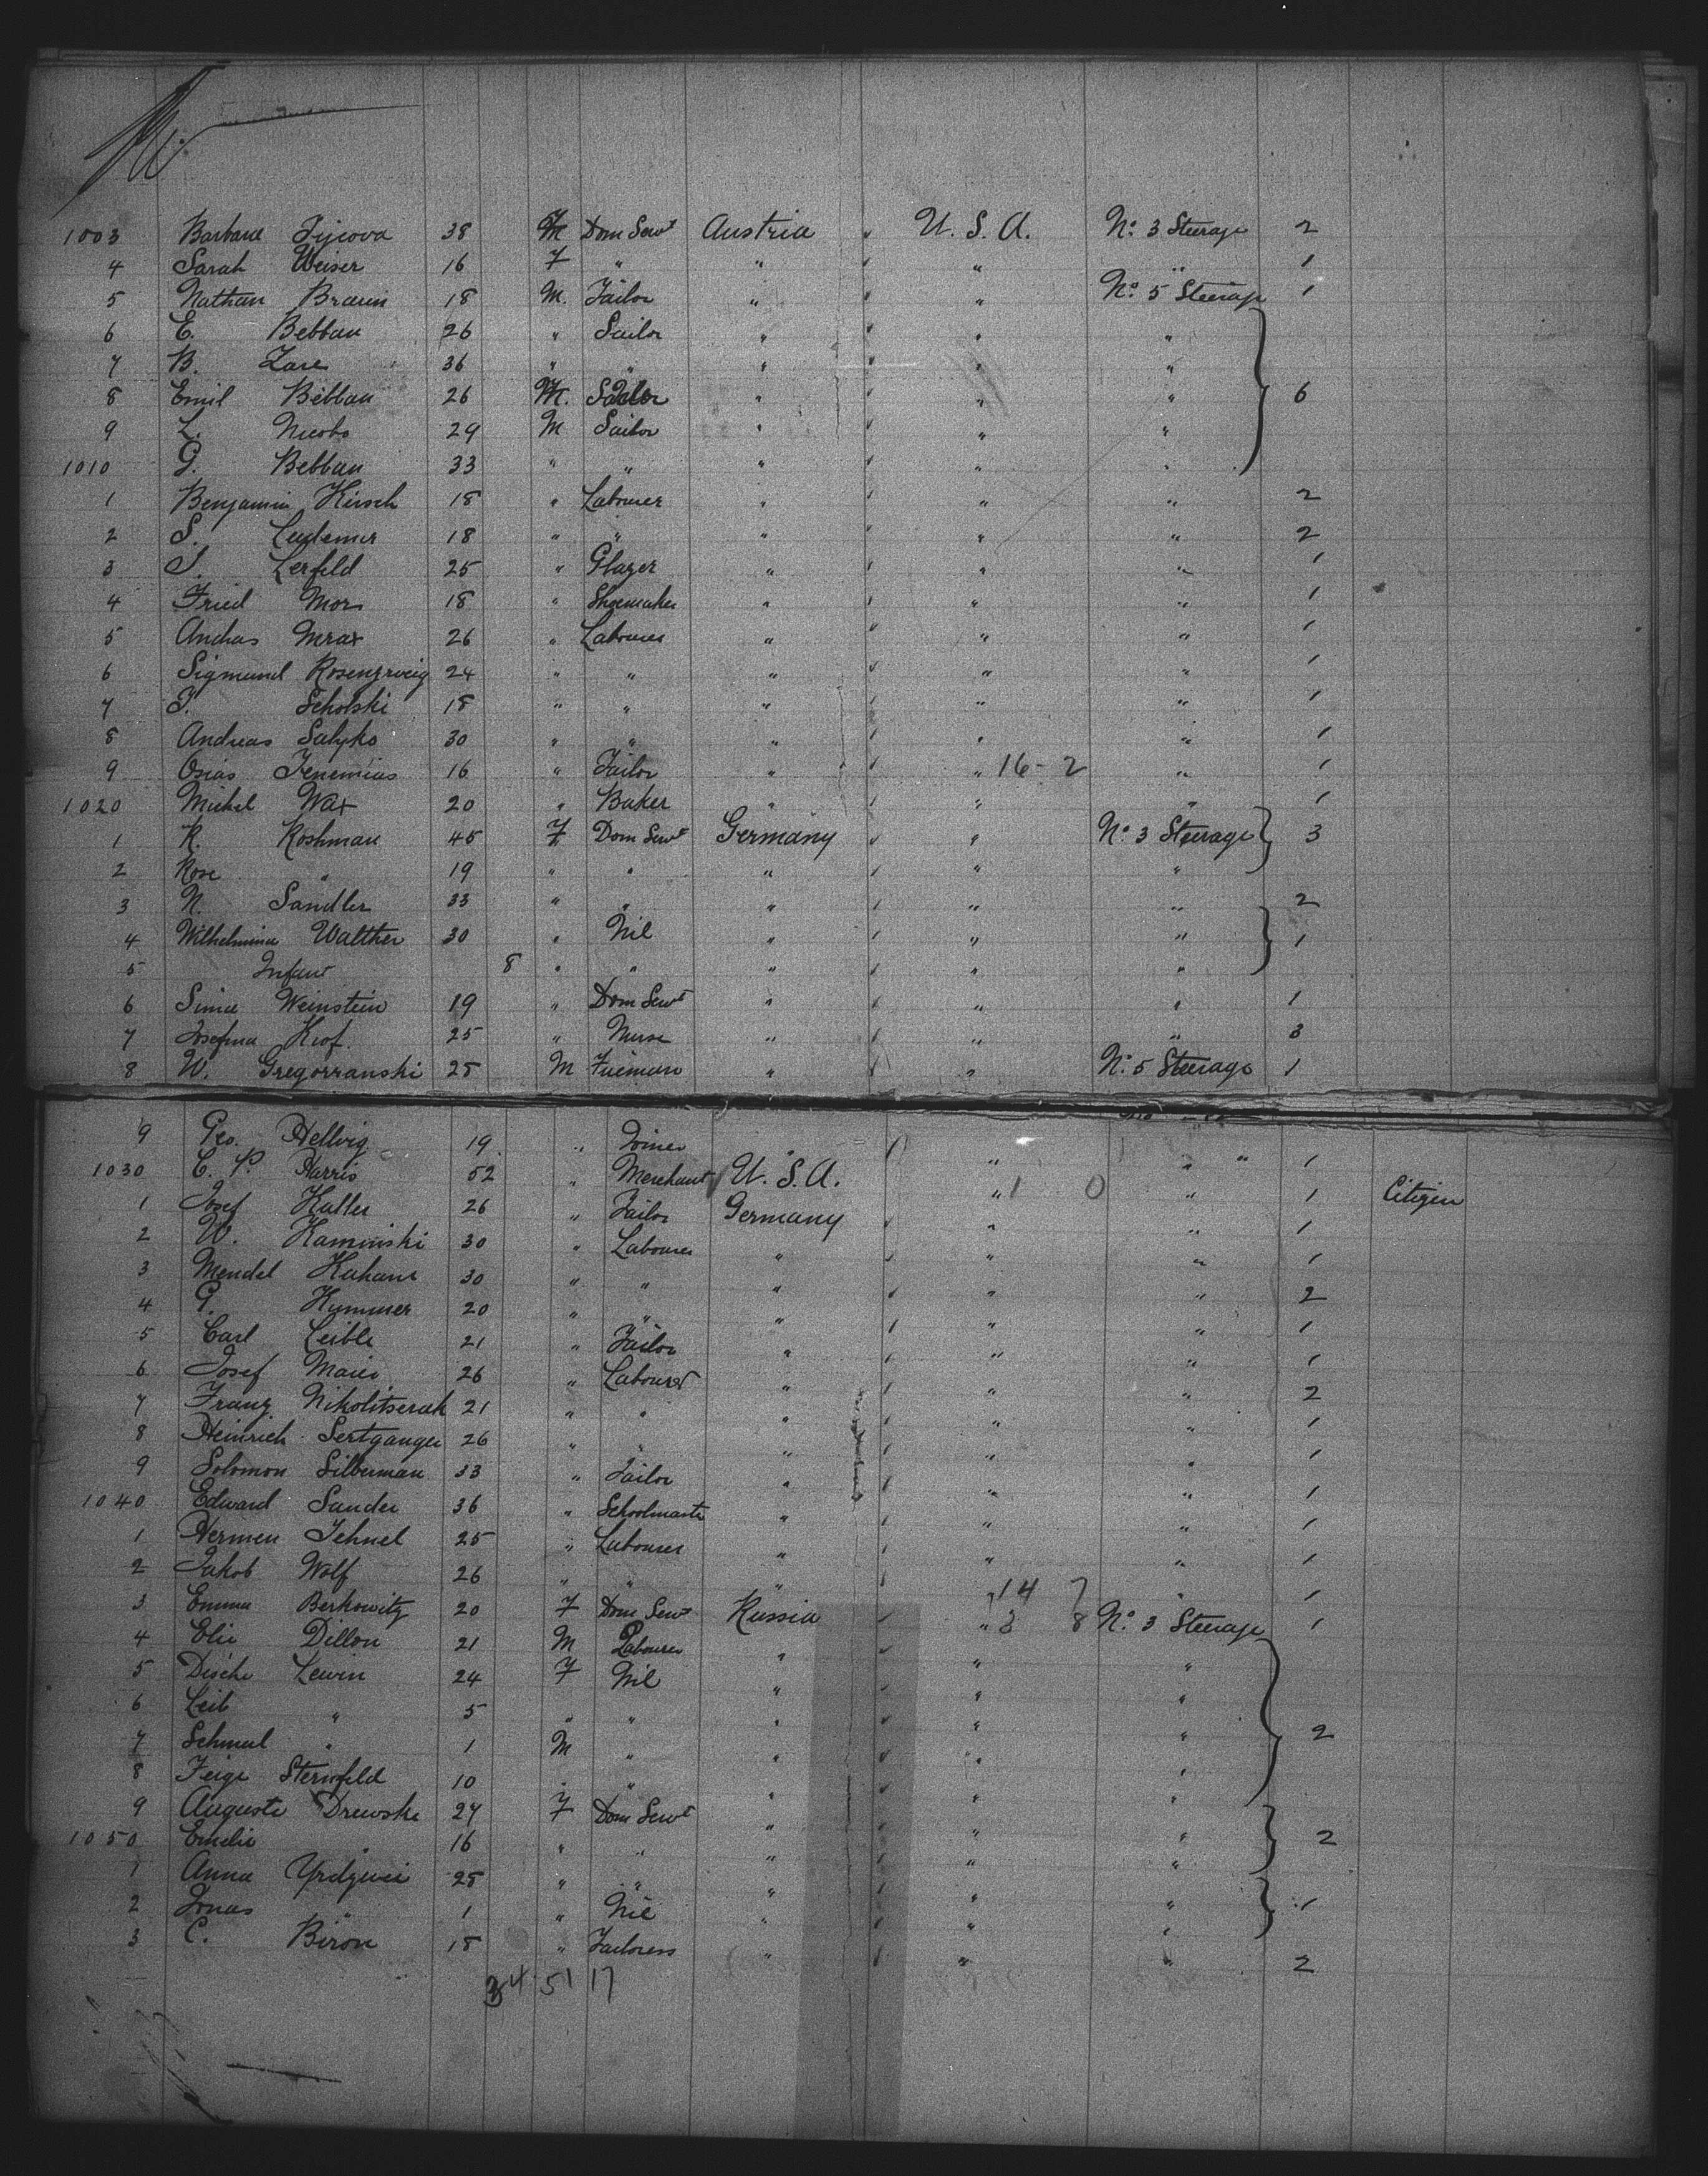 1003 Barbara 38 M Dom Servt Austria " U. S. A. No. 3 Steerage 2
4 Sarah Weiser 16 F " " " " " 1
5 Nathan Braun 18 M. Tailor " " " No. 5 Steerage 1
6 E. Bebbau 26 " Sailor " " " "
7 B. Zare 36 " " " " " "
8 Emil Bebbau 26 M. " " " " 6
9 L. 29 M Sailor " " " "
1010 G. Bebbau 33 " " " " " "
1 Benjamin Hirsch 18 " Labourer " " " " 2
2 S. 18 " " " " " " 2
3 S. Lerfeld 25 " Glazer " " " " 1
4 Fried Mor 18 " Shoemaker " " " " 1
5 Mrax 26 " Labourer " " " " 1
6 Sigmund Rosenzweig 24 " " " " " " 1
7 Scholski 18 " " " " " " 1
8 Andreas Salyko 30 " " " " " " 1
9 Osias Jeremias 16 " Tailor " " " 16-2 " 1
1020 Michel Wax 20 " Baker " " " " 1
1 K. Roshman 45 F Dom Servt Germany " " No. 3 Steerage 3
2 Rose " 19 " " " " " "
3 N. Sandler 33 " " " " " " 2
4 Wilhelmina Walther 30 " Nil " " " " 1
5 Infant 8 " " " " " "
6 Simie Weinstein 19 " Dom Servt " " " " 1
7 Josefina Krof. 25 " Nurse " " " " 3
8 W. Gregorranski 25 M Fireman " " " No. 5 Steerage 1
9 Geo. Hellvig 19 " Joiner " " " " 1
1030 C. P. Harris 52 " Merchant U. S. A. " 1 0 " 1 Citizen
1 Josef Haller 26 " Tailor Germany " " " 1
2 W. Kaminski 30 " Labourer " " " " 1
3 Mendel Kahane 30 " " " " " " 2
4 G. Kummer 20 " " " " " " 1
5 Carl Leible 21 " Tailor " " " " 1
6 Josef Maier 26 " Labourer " " " " 2
7 Franz Nikolitserak 21 " " " " " " 1
8 Heinrich Sertganger 26 " " " " " " 1
9 Solomon Silberman 33 " Tailor " " " " 1
1040 Edward Sander 36 " Schoolmaster " " " " 1
1 Hermen Jehnel 25 " Labourer " " " " 1
2 Jakob Wolf 26 " " " " " 14 7 " 1
3 Emma Berkowitz 20 F Dom Servt Russia " " 3 8 No. 3 Steerage 1
4 Elie Dillon 21 M Labourer " " " "
5 Dische Lewin 24 F Nil " " " "
6 Leib " 5 " " " " " "
7 Schmul " 1 M " " " " " 2
8 Feige Sternfeld 10 " " " " " "
9 Auguste Drewske 27 F Dom Servt " " " "
1050 Emelie " 16 " " " " " " 2
1 Anna 25 " " " " " "
2 Jonas " 1 " Nil " " " " 1
3 C. Biron 18 " Tailoress " " " " 2
34 51 17